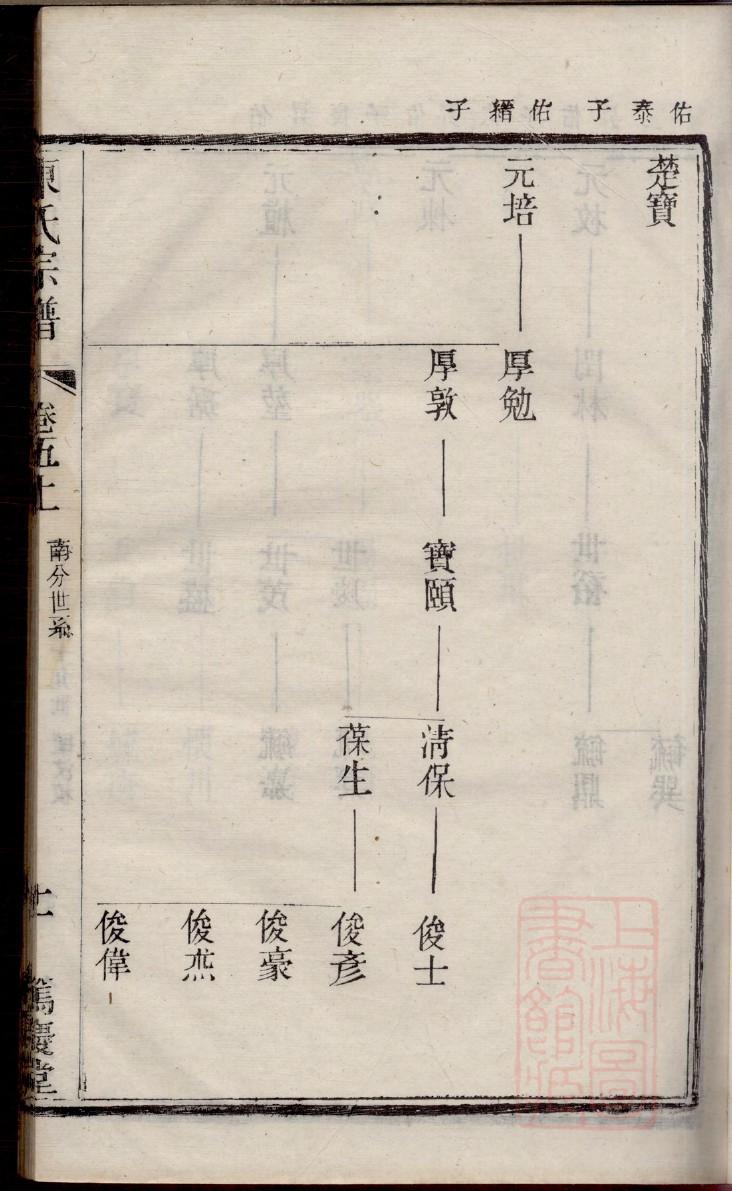 佑泰子
佑縉子
楚寶
元培
厚勉
厚敦
寶頤
清保
葆生
俊士
俊彥
俊豪
俊杰
俊偉
陳氏宗譜
卷五上
南分世系
篤慶堂
上海圖書館藏